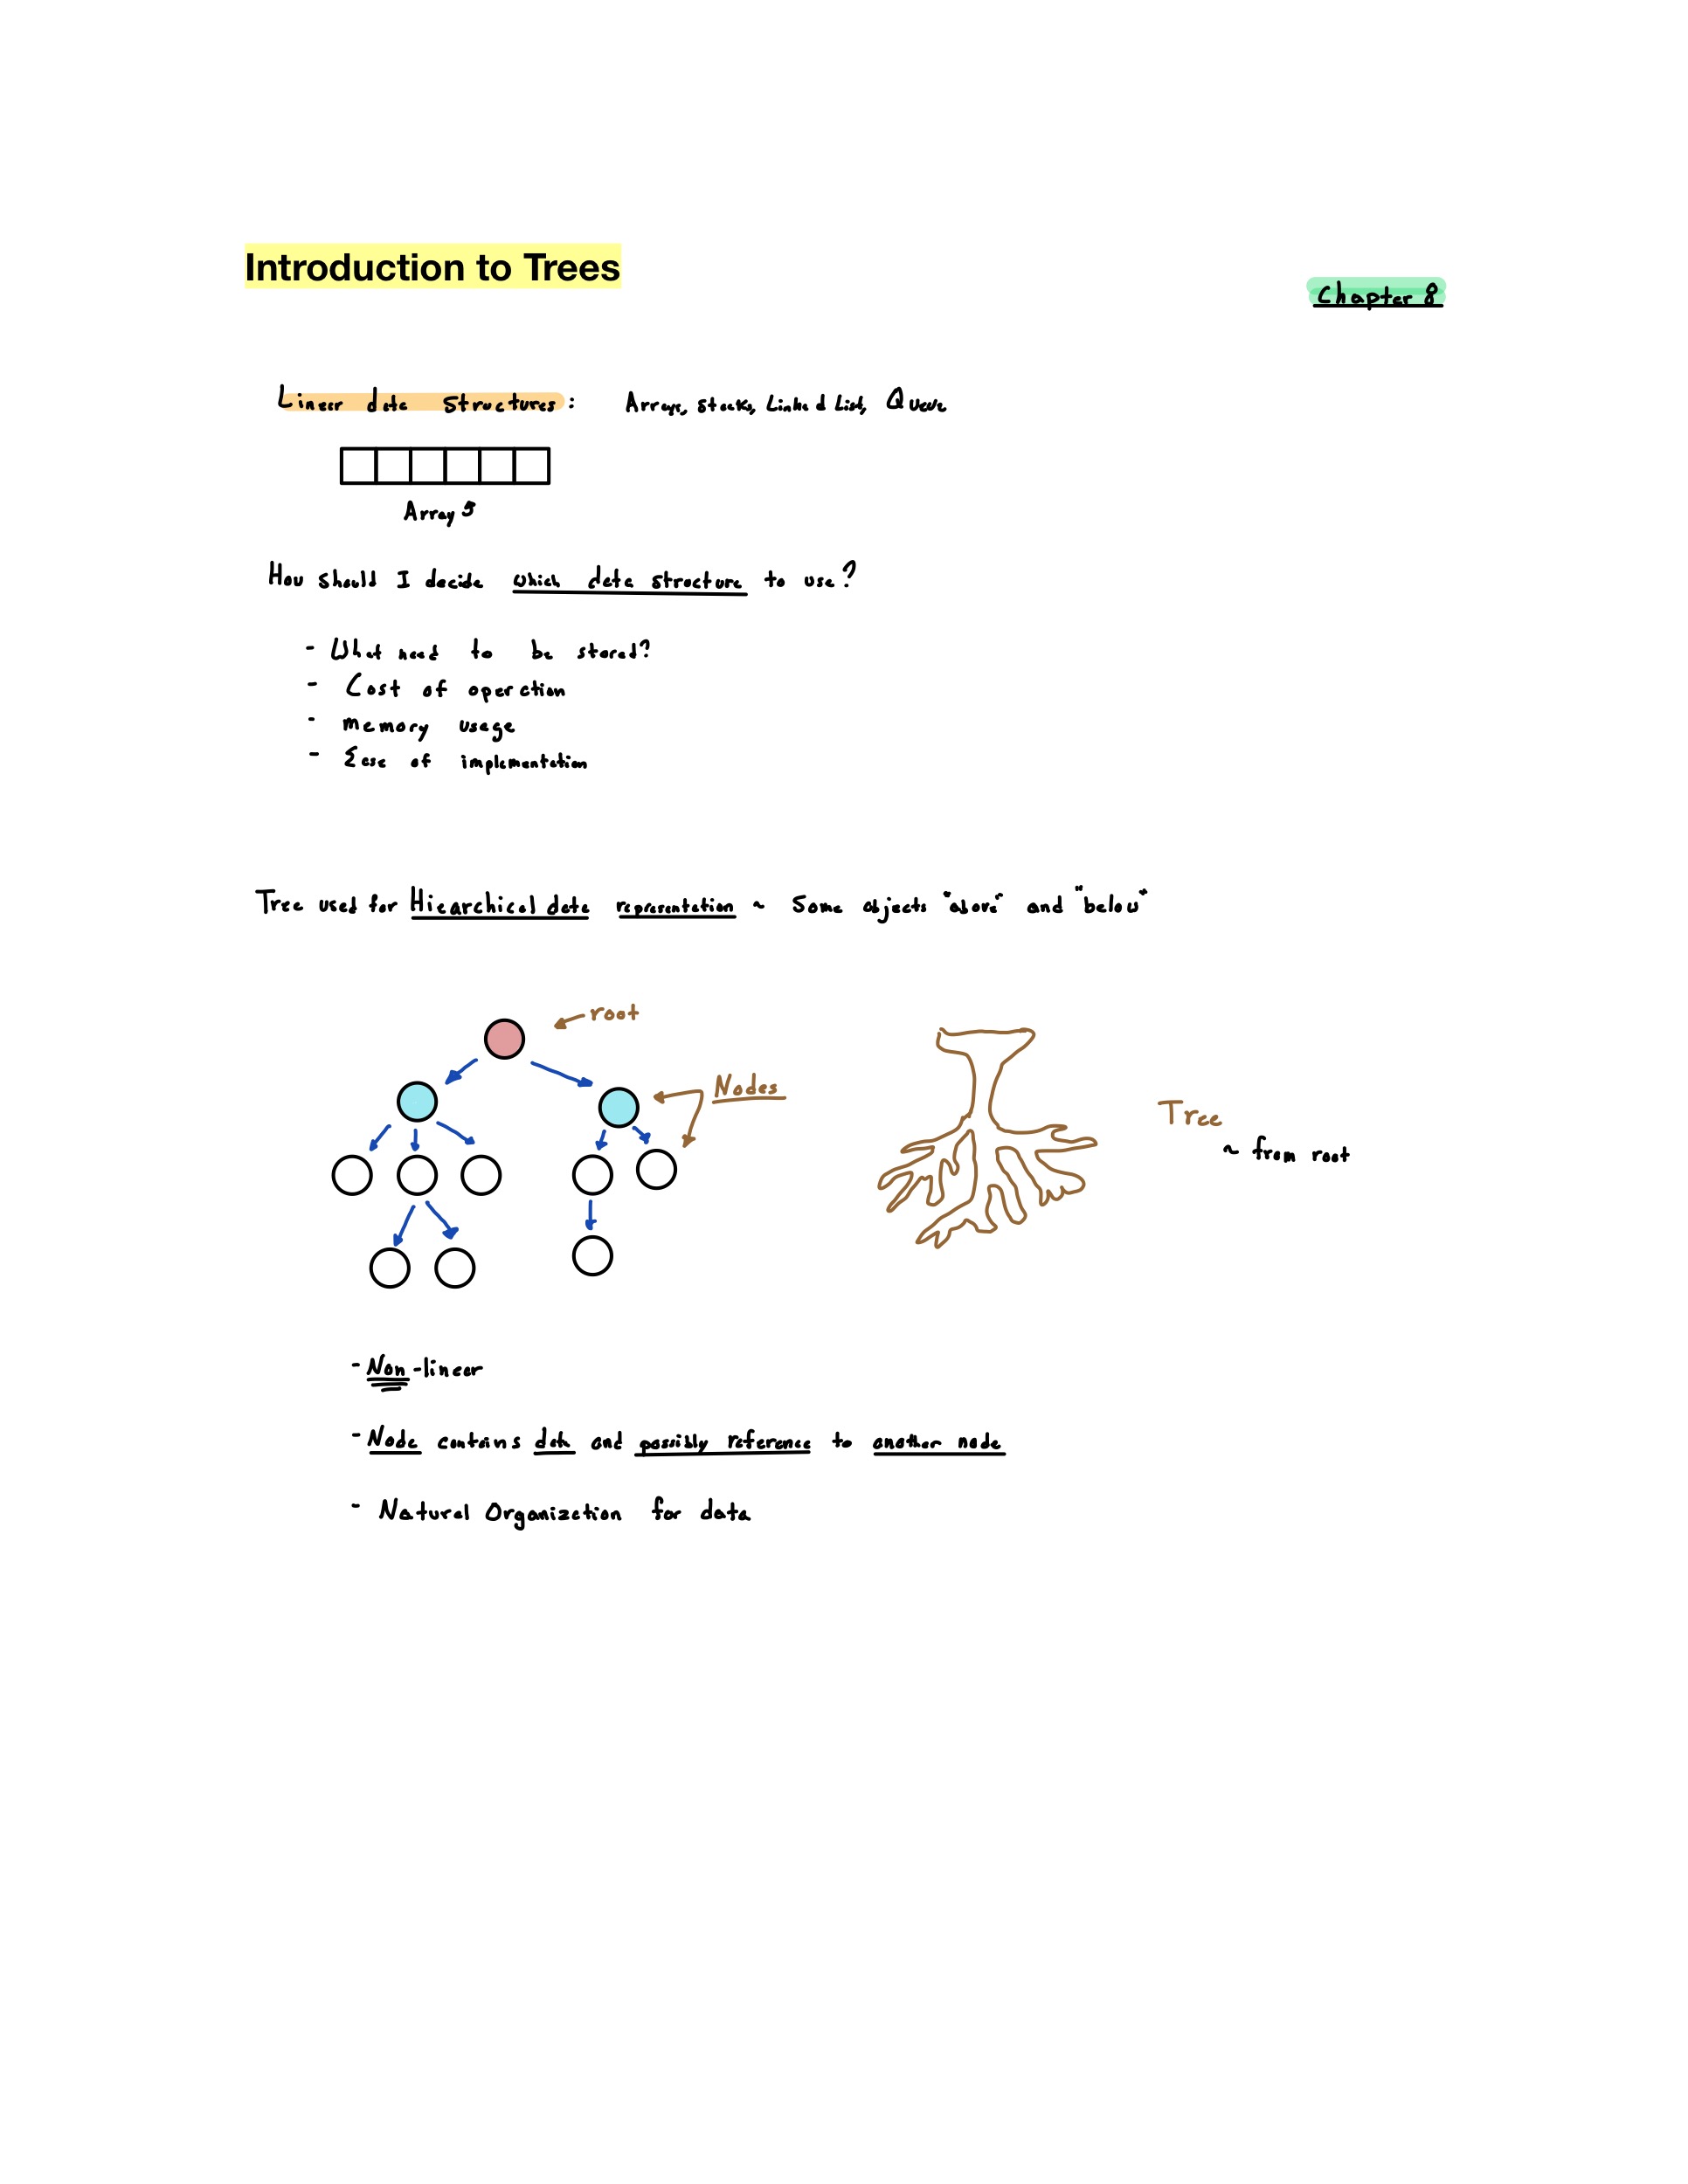 Introduction to Trees
Chapter 8
Linear data Structures: Arrays, Stacks, Linked List, Queue
Arrays
How should I decide which data structure to use?
- What need to be stored?
- Cost of operation
- memory usage
- Ease of implementation
Tree used for Hiearchical data representation ~ Some objects "above" and "below"
root
Nodes
Tree
~ from root
- Non-linear
- Node contains data and possibly reference to another node
- Natural Organization for data